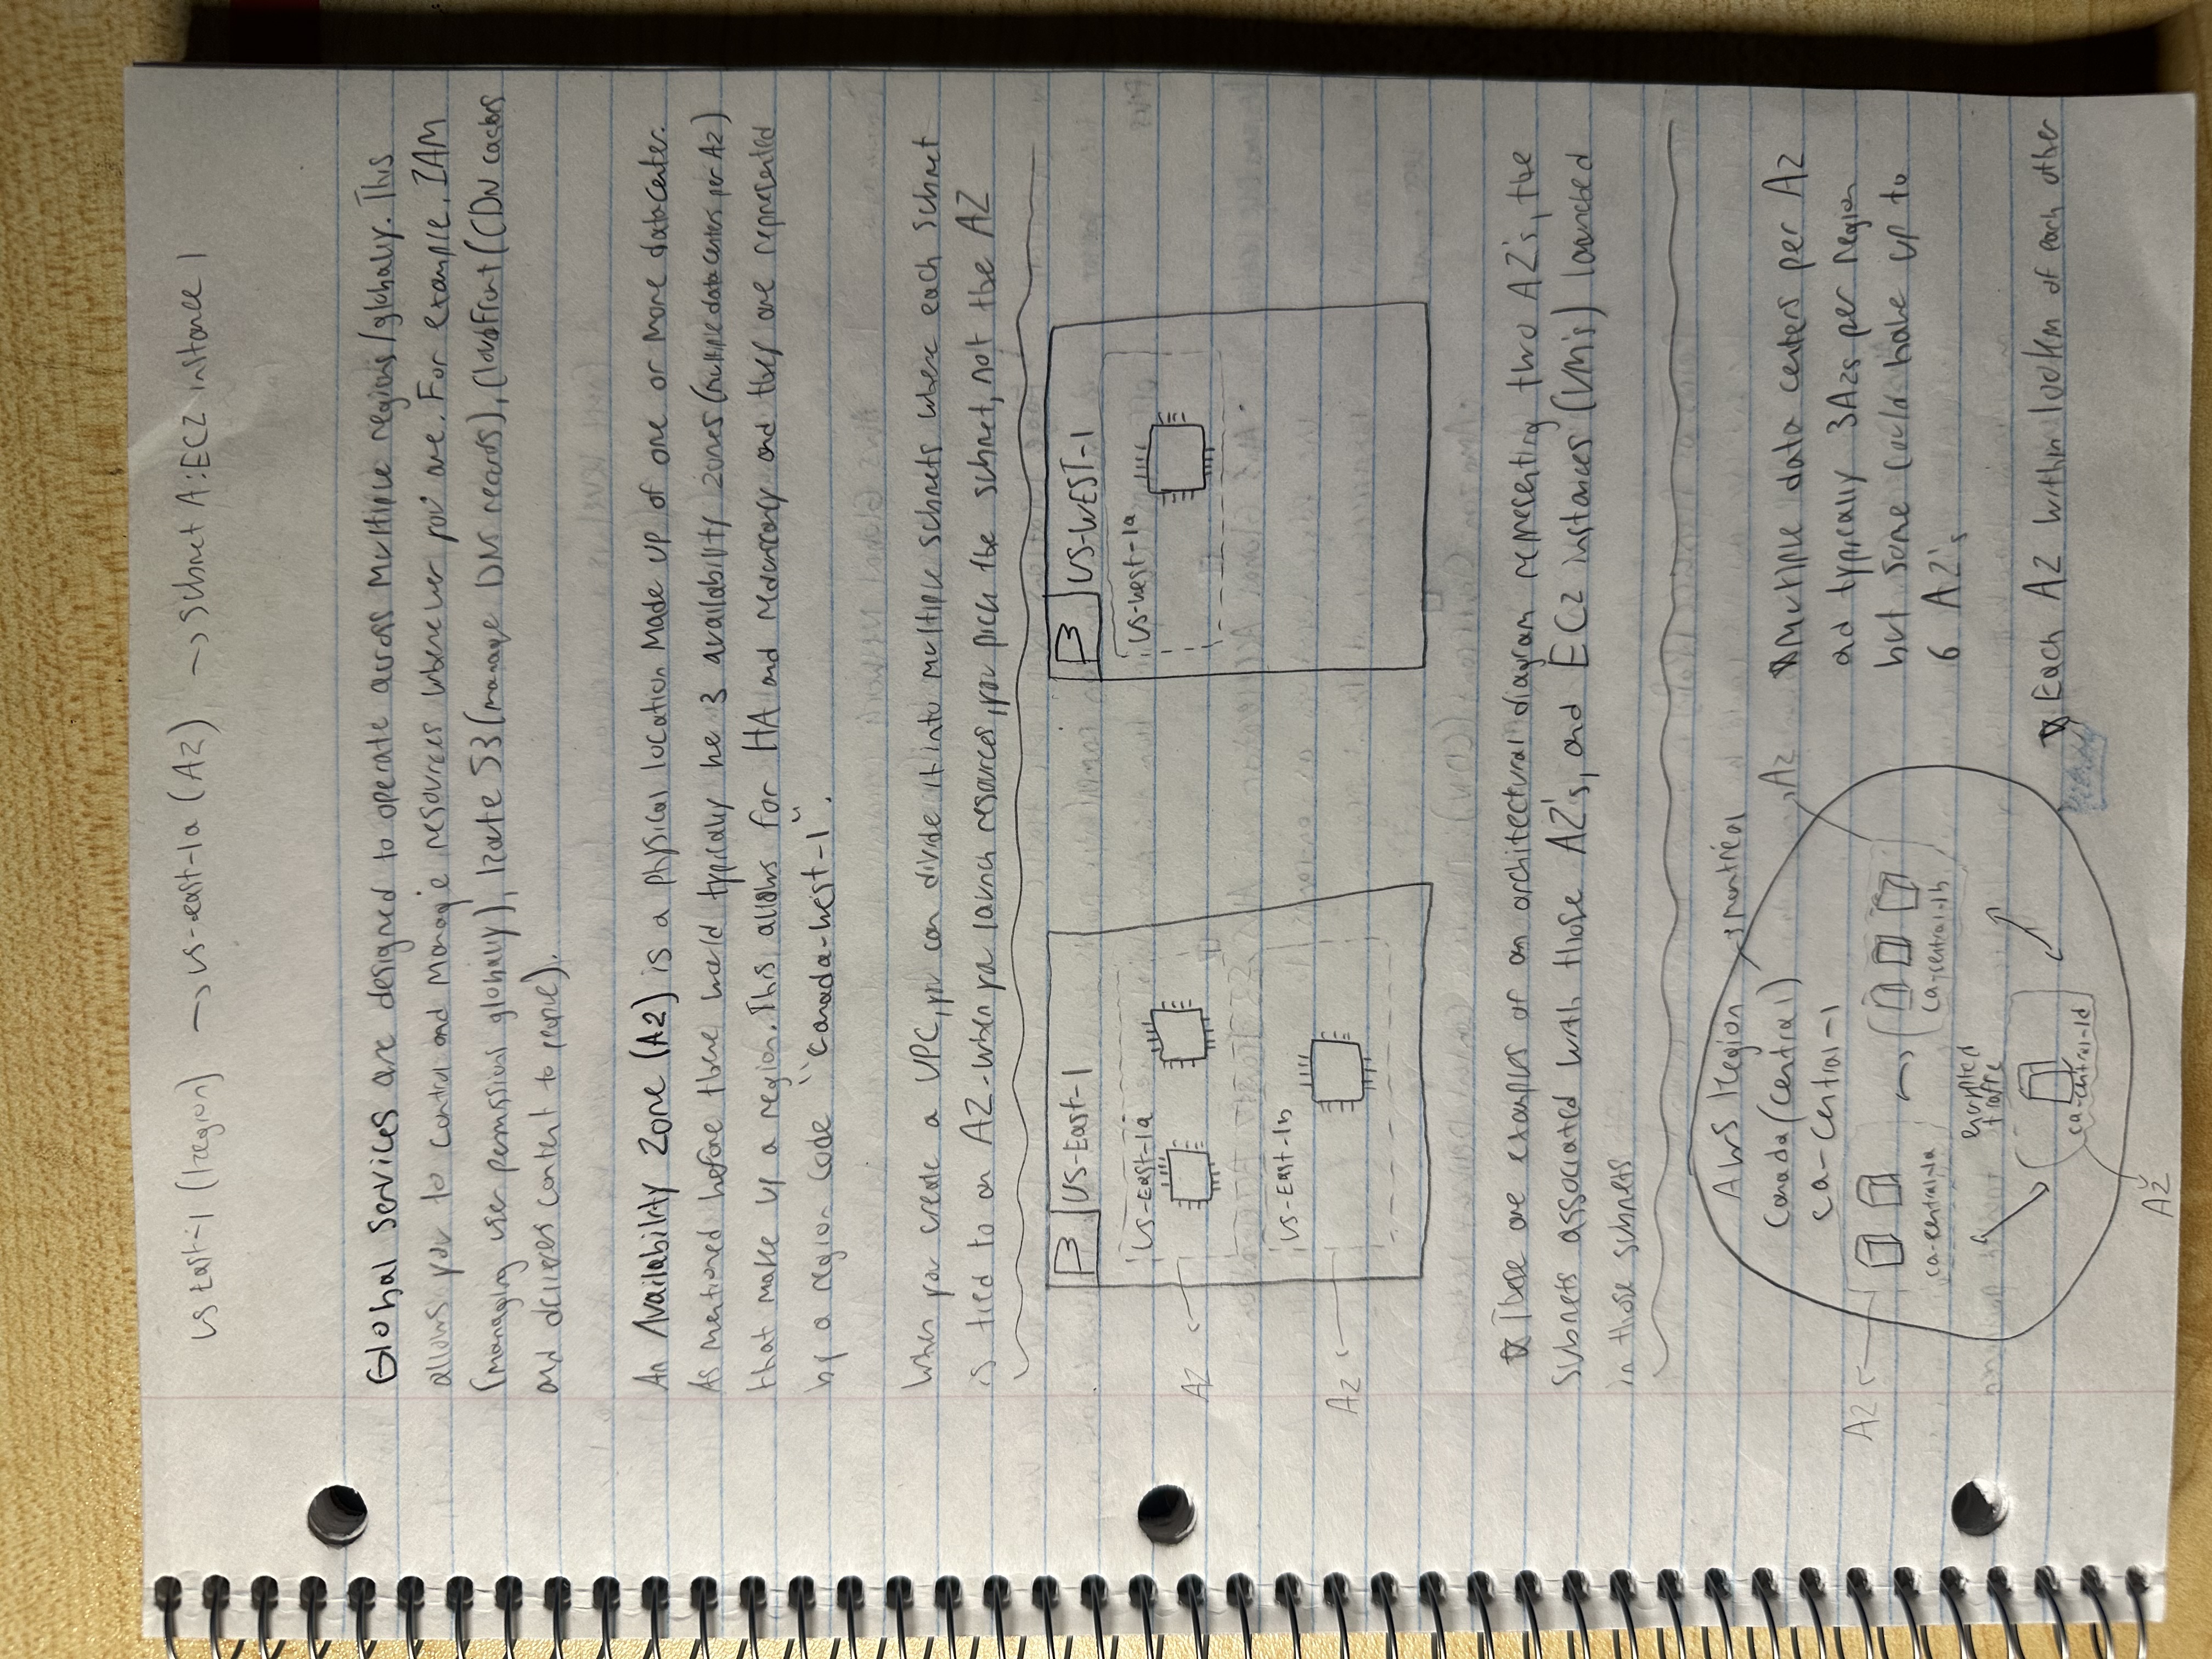 US East-1 (Region) → us-east-1a (AZ) → Subnet A: EC2 instance 1
Global Services are designed to operate across multiple regions/globally. This
allows you to control and manage resources wherever you are. For example, IAM
(managing user permissions globally), Route 53 (manage DNS records), CloudFront (CDN caches
and delivers content to people).
An Availability Zone (AZ) is a physical location made up of one or more datacenter.
As mentioned before there would typically be 3 availability zones (multiple data centers per AZ)
that make up a region. This allows for HA and redundancy and they are represented
by a region code "Canada-west-1".
When you create a VPC, you can divide it into multiple subnets where each subnet
is tied to an AZ - when you launch resources, you pick the subnet, not the AZ
US-East-1
US-WEST-1
US-East-1a
US-West-1a
AZ
US-East-1b
AZ
☆ These are examples of an architectural diagram representing two AZ's, the
subnets associated with those AZ's, and EC2 instances (VM's) launched
in those subnets
AWS Region → Montréal
Canada (Central)
ca-central-1
AZ
AZ
ca-central-1a
ca-central-1b
encrypted
traffic
ca-central-1d
AZ
☆ Multiple data centers per AZ
ad typically 3 AZs per region
but some could have up to
6 AZ's
☆ Each AZ within 100km of each other